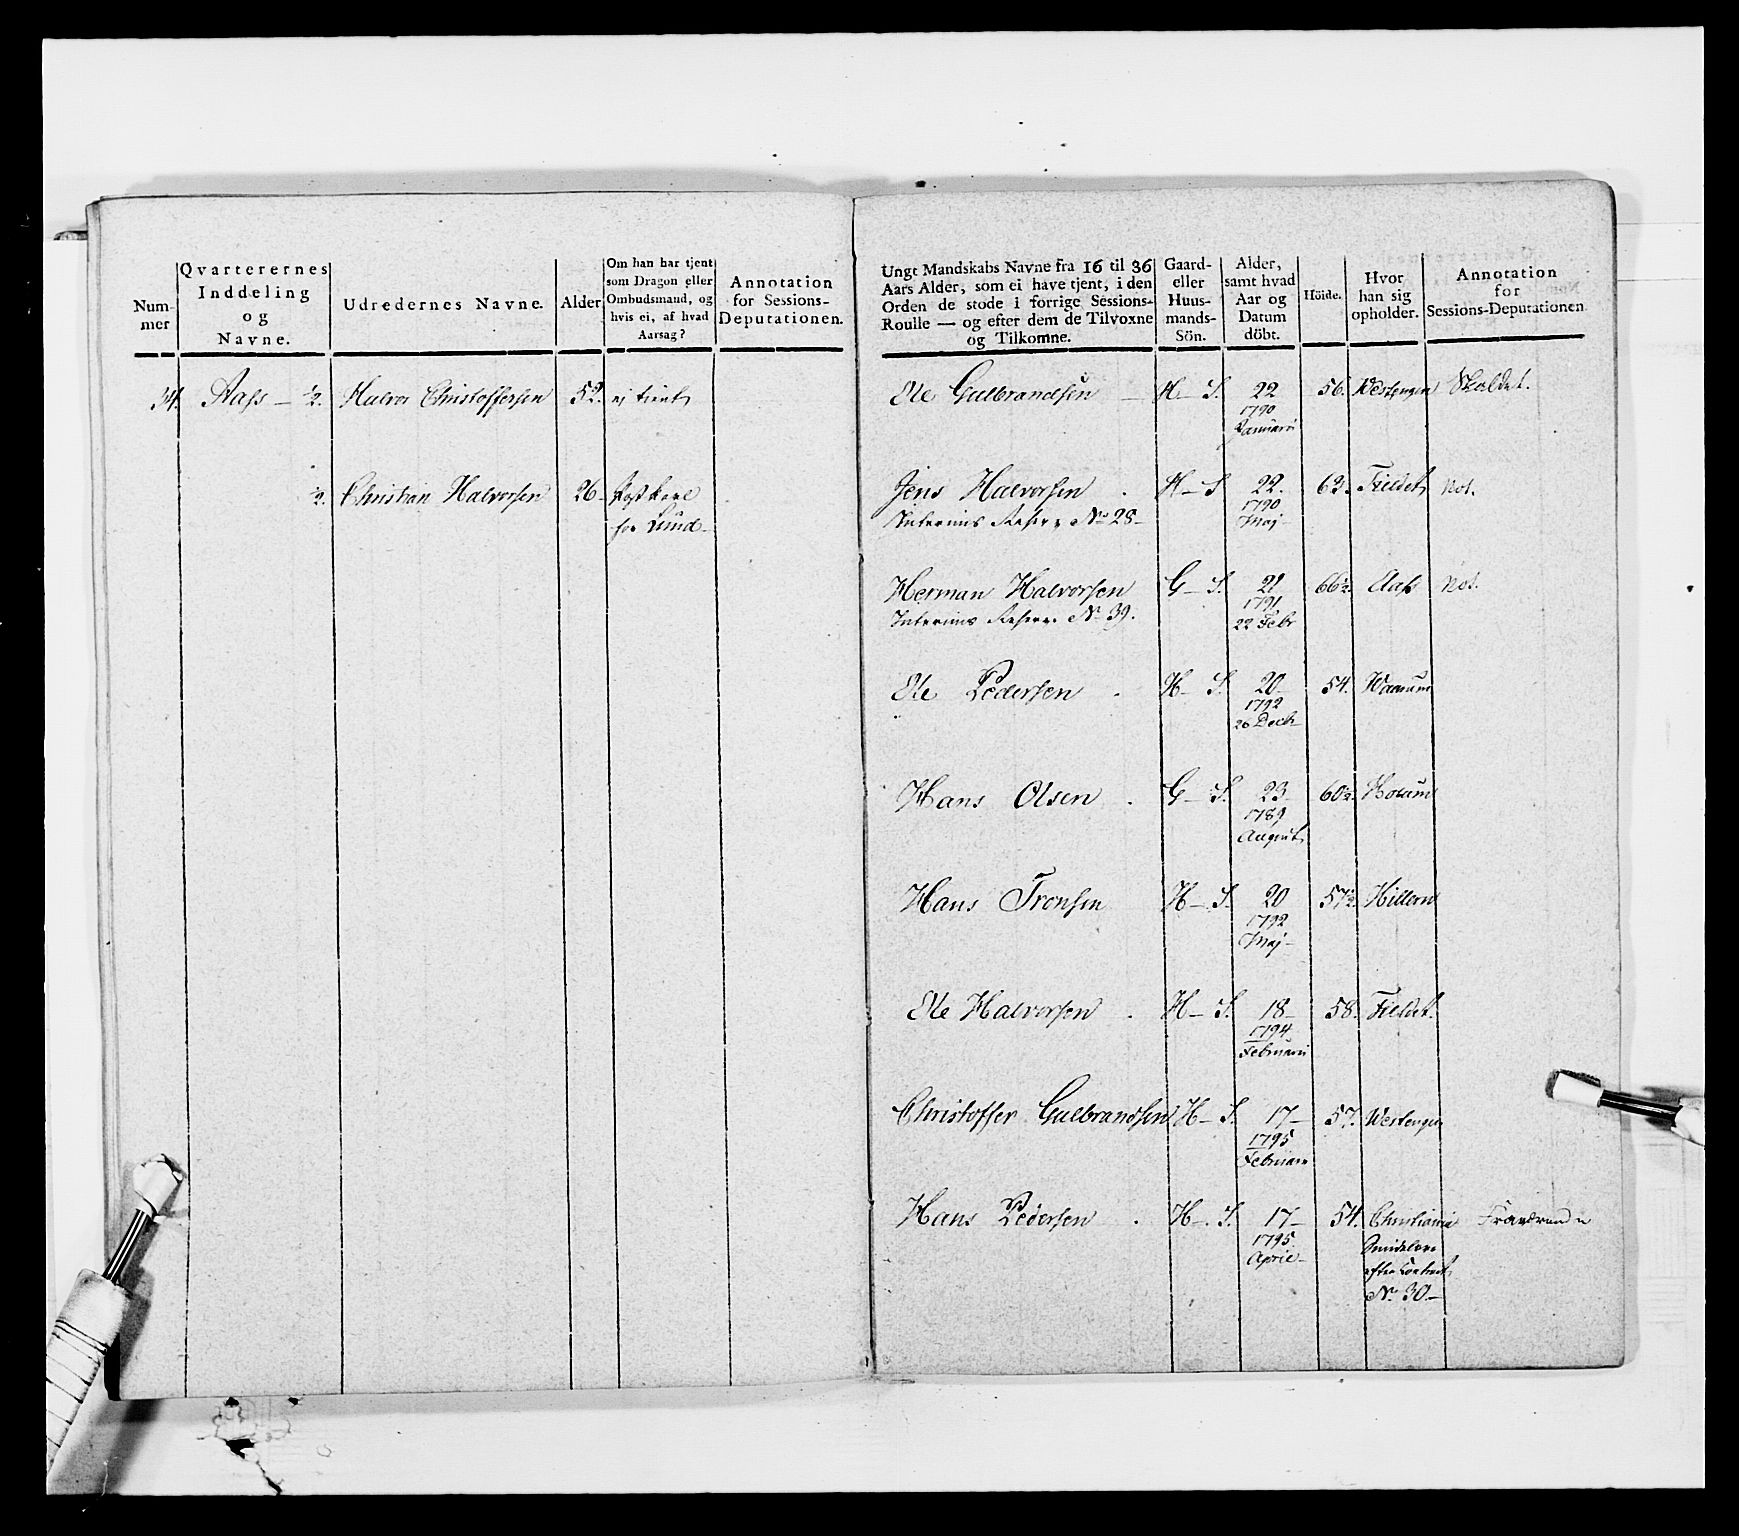 Num-
mer
Qvarterernes
Inddeling
og
Navne.
Udredernes Navne.
Alder
Om han har tjent
som Dragon eller
Ombudsmand, og
hvis ei, af hvad
Aarsag?
Annotation
for Sessions-
Deputationen.
34. Aass — ½. Halvor Christoffersen 52. ej tient
½. Christian Halvorsen 26 Postkarl
for Lund
Ungt Mandskabs Navne fra 16 til 36
Aars Alder, som ei have tjent, i den
Orden de stode i forrige Sessions-
Roulle — og efter dem de Tilvoxne
og Tilkomne.
Gaard-
eller
Huus-
mands-
Sön.
Alder,
samt hvad
Aar og
Datum
döbt.
Höide.
Hvor
han sig
opholder.
Annotation
for
Sessions-Deputationen
Ole Gulbrandsen — H - S. 22 56. Westengen Skaldet.
1790
Januari
Jens Halvorsen . H - S 22. 62. Fieldet Not.
Interims Reserv No 28 - 1790
Maj -
Herman Halvorsen G - S. 21 66½. Aass Not.
Interims Reserv. No 39. 1791
22 Febr
Ole Pedersen . H - S. 20 54. Waarum
1792
26 Decb
Hans Olsen . G - S. 23 60½. Horum
1789
August
Hans Tronsen H - S. 20 57½. Hillern
1792
Maj -
Ole Halvorsen . H - S. 18 - 58. Fieldet.
1794
Februari
Christoffer Gulbrandsen H - S. 17 - 57. Westengen
1795
Februari
Hans Pedersen . H - S. 17 - 54. Christiania Fraværende
1795
April -
efter Contract
No 30 -